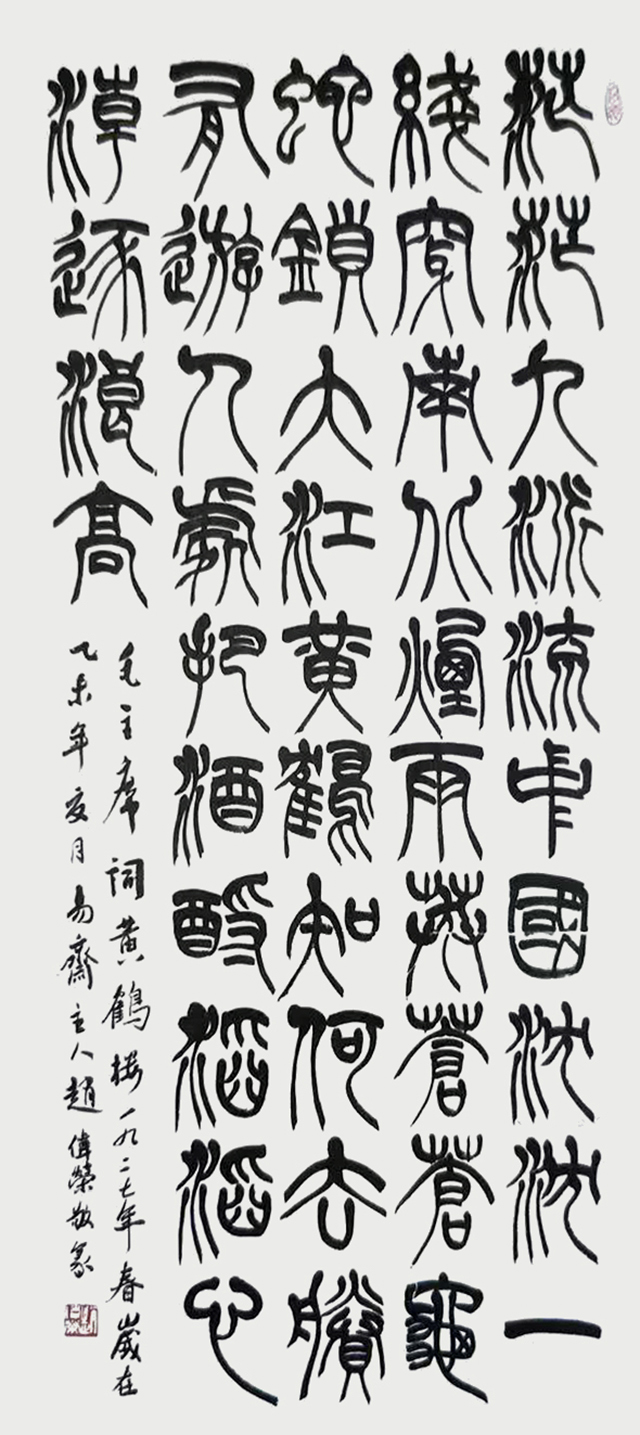 茫茫九派流中國沈沈一
綫穿南北煙雨莽蒼蒼龜
蛇鎖大江黃鶴知何去賸
有遊人處把酒酹滔滔心
潮逐浪高
毛主席詞黄鶴樓一九二七年春嵗在
乙未年亥月易齋主人趙偉榮敬篆